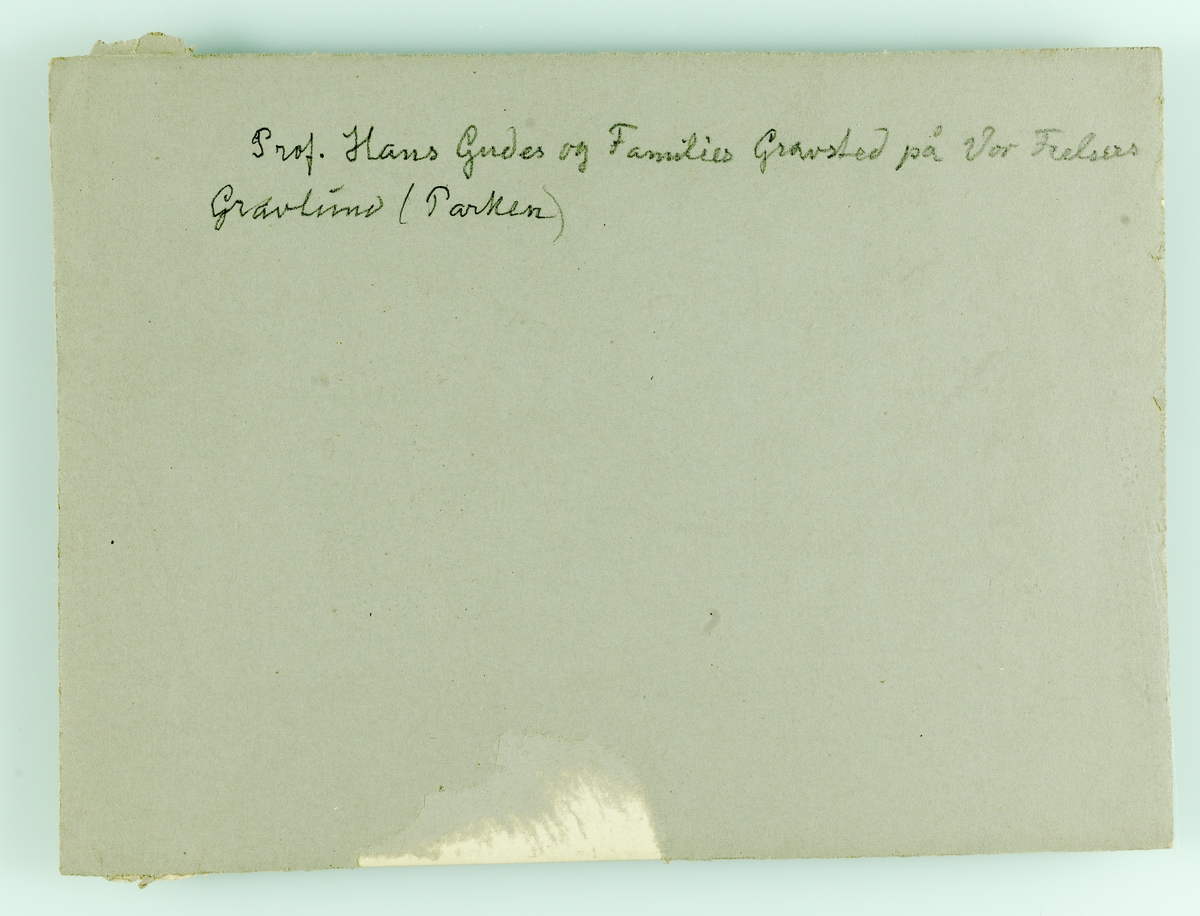 Prof. Hans Gudes og Families Gravsted på Vor Frelsers
Gravlund (Parken)